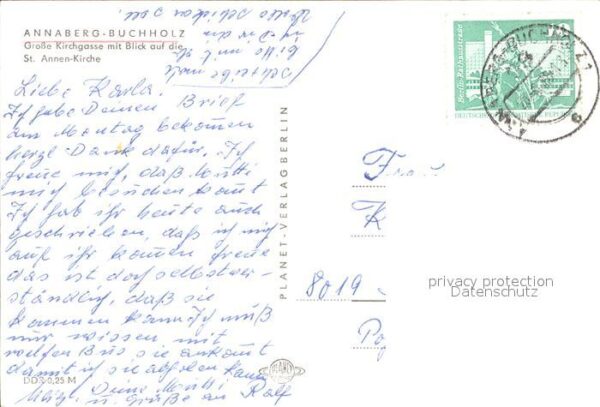 ANNABERG-BUCHHOLZ
Große Kirchgasse mit Blick auf die
St. Annen-Kirche
Liebe Karla!
Ich habe Deinen Brief
am Montag bekommen
herzl. Dank dafür. Ich
freue mich, daß Mutti
mich besuchen kommt
Ich hab ihr heute auch
geschrieben, daß ich mich
auf ihr kommen freue
das ist doch selbstver-
ständlich, daß sie
kommen kann. Ich muß
nur wissen mit
welfen Bus sie ankommt
damit ich sie abholen kann
Deine Mutti
u. Grüße an Ralf
bitte mit
Schreibe noch
DDR 0,25 M
PLANET-VERLAG BERLIN
PLANET
Berlin, Rathausstraße
10
DEUTSCHE DEMOKRATISCHE REPUBLIK
ANNABERG-BUCHHOLZ 1
Frau
K
8019
privacy protection
Datenschutz